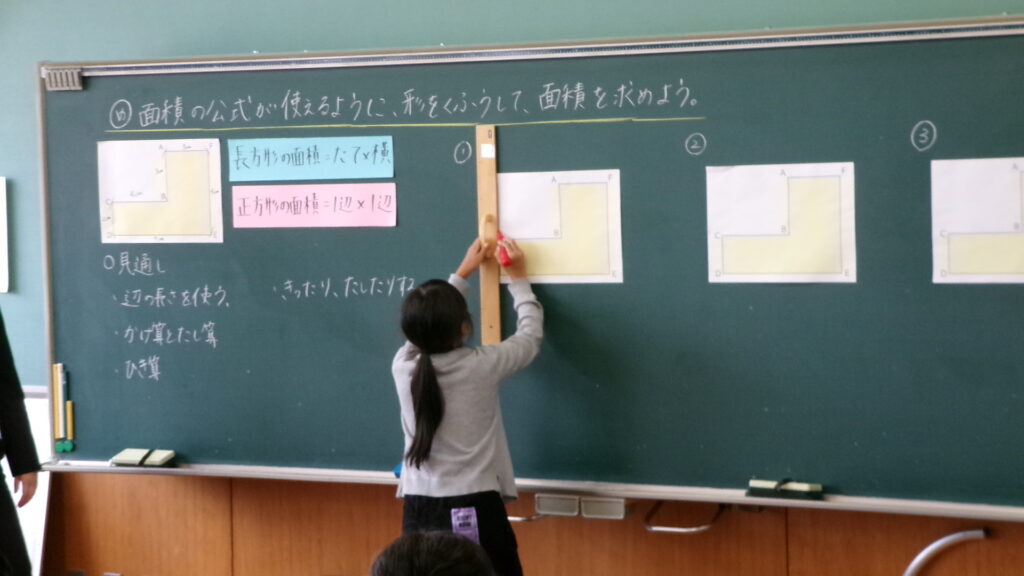 め 面積の公式が使えるように、形をくふうして、面積を求めよう。
長方形の面積=たて×横
正方形の面積=1辺×1辺
○見通し
・辺の長さを使う。
・かけ算とたし算
・ひき算
・きったり、たしたりする
①
A F
B
E
②
A F
C B
D E
③
A
C
D
A F
C B
D E